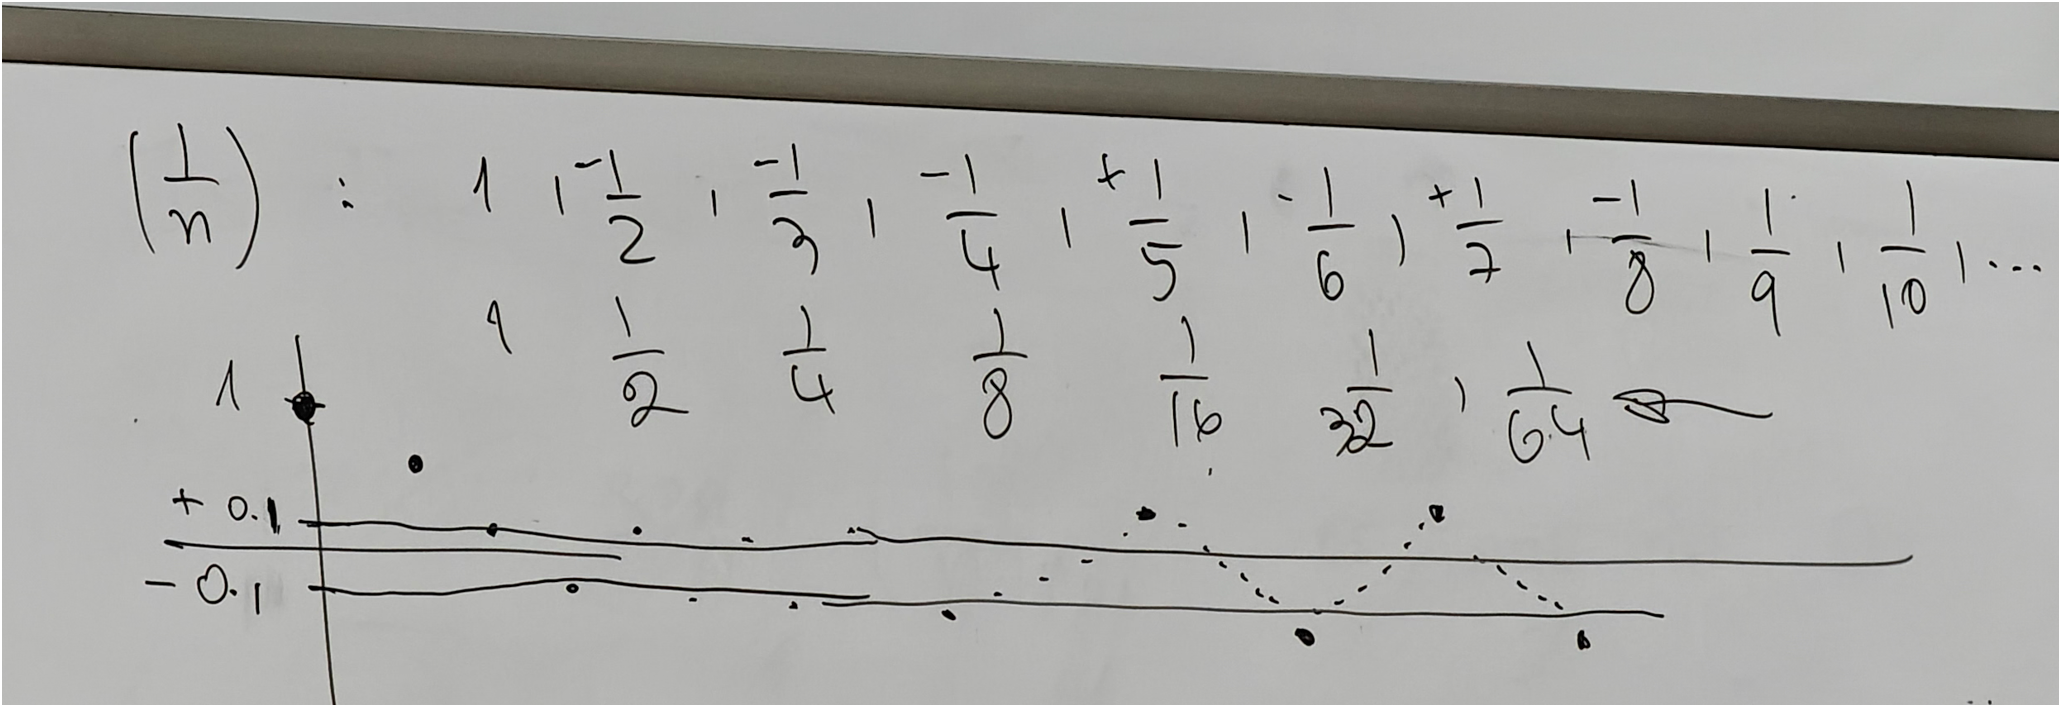 (1/n) : 1 , -1/2 , -1/3 , -1/4 , +1/5 , -1/6 , +1/7 , -1/8 , 1/9 , 1/10 , ...
1 1/2 1/4 1/8 1/16 1/32 , 1/64
1
+ 0.1
- 0.1